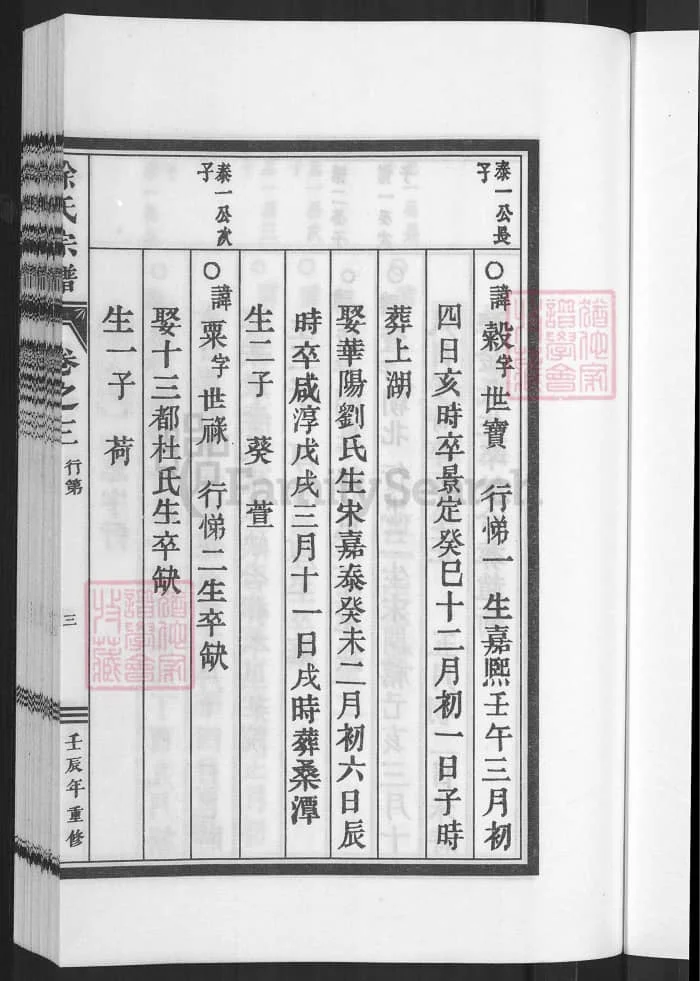 泰一公長
子
○諱榖字世寶 行悌一 生嘉熙壬午三月初
四日亥時卒景定癸巳十二月初一日子時
葬上湖
娶華陽劉氏生宋嘉泰癸未二月初六日辰
時卒咸淳戊戌三月十一日戌時葬桑潭
生二子 葵 萱
泰一公次
子
○諱粟字世祿 行悌二生卒缺
娶十三都杜氏生卒缺
生一子 荷
徐氏宗譜 卷之三 行第 三 壬辰年重修
FamilySearch